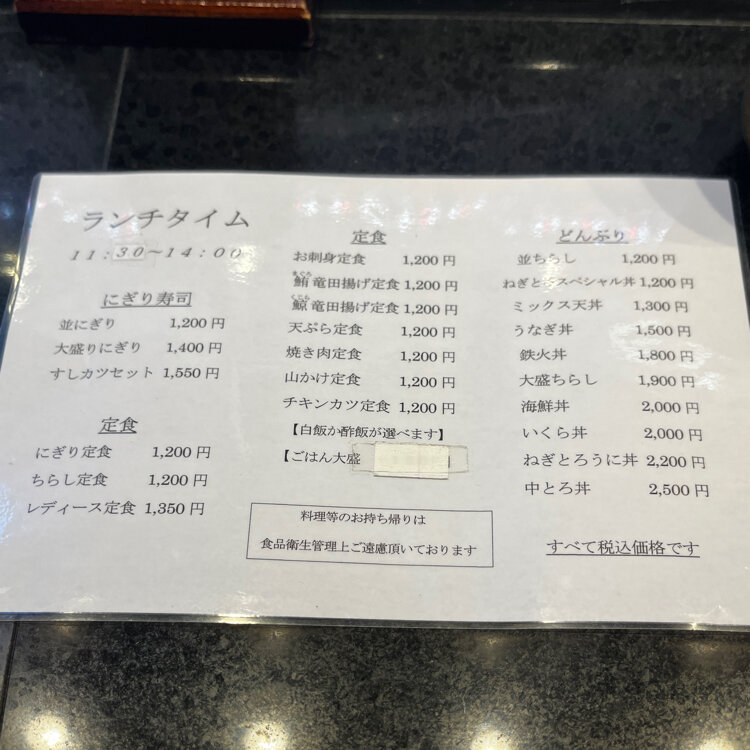 ランチタイム
11:30~14:00
にぎり寿司
並にぎり 1,200円
大盛りにぎり 1,400円
すしカツセット 1,550円
定食
にぎり定食 1,200円
ちらし定食 1,200円
レディース定食 1,350円
定食
お刺身定食 1,200円
鮪竜田揚げ定食 1,200円
鯨竜田揚げ定食 1,200円
天ぷら定食 1,200円
焼き肉定食 1,200円
山かけ定食 1,200円
チキンカツ定食 1,200円
【白飯か酢飯が選べます】
【ごはん大盛
料理等のお持ち帰りは
食品衛生管理上ご遠慮頂いております
どんぶり
並ちらし 1,200円
ねぎとろスペシャル丼 1,200円
ミックス天丼 1,300円
うなぎ丼 1,500円
鉄火丼 1,800円
大盛ちらし 1,900円
海鮮丼 2,000円
いくら丼 2,000円
ねぎとろうに丼 2,200円
中とろ丼 2,500円
すべて税込価格です